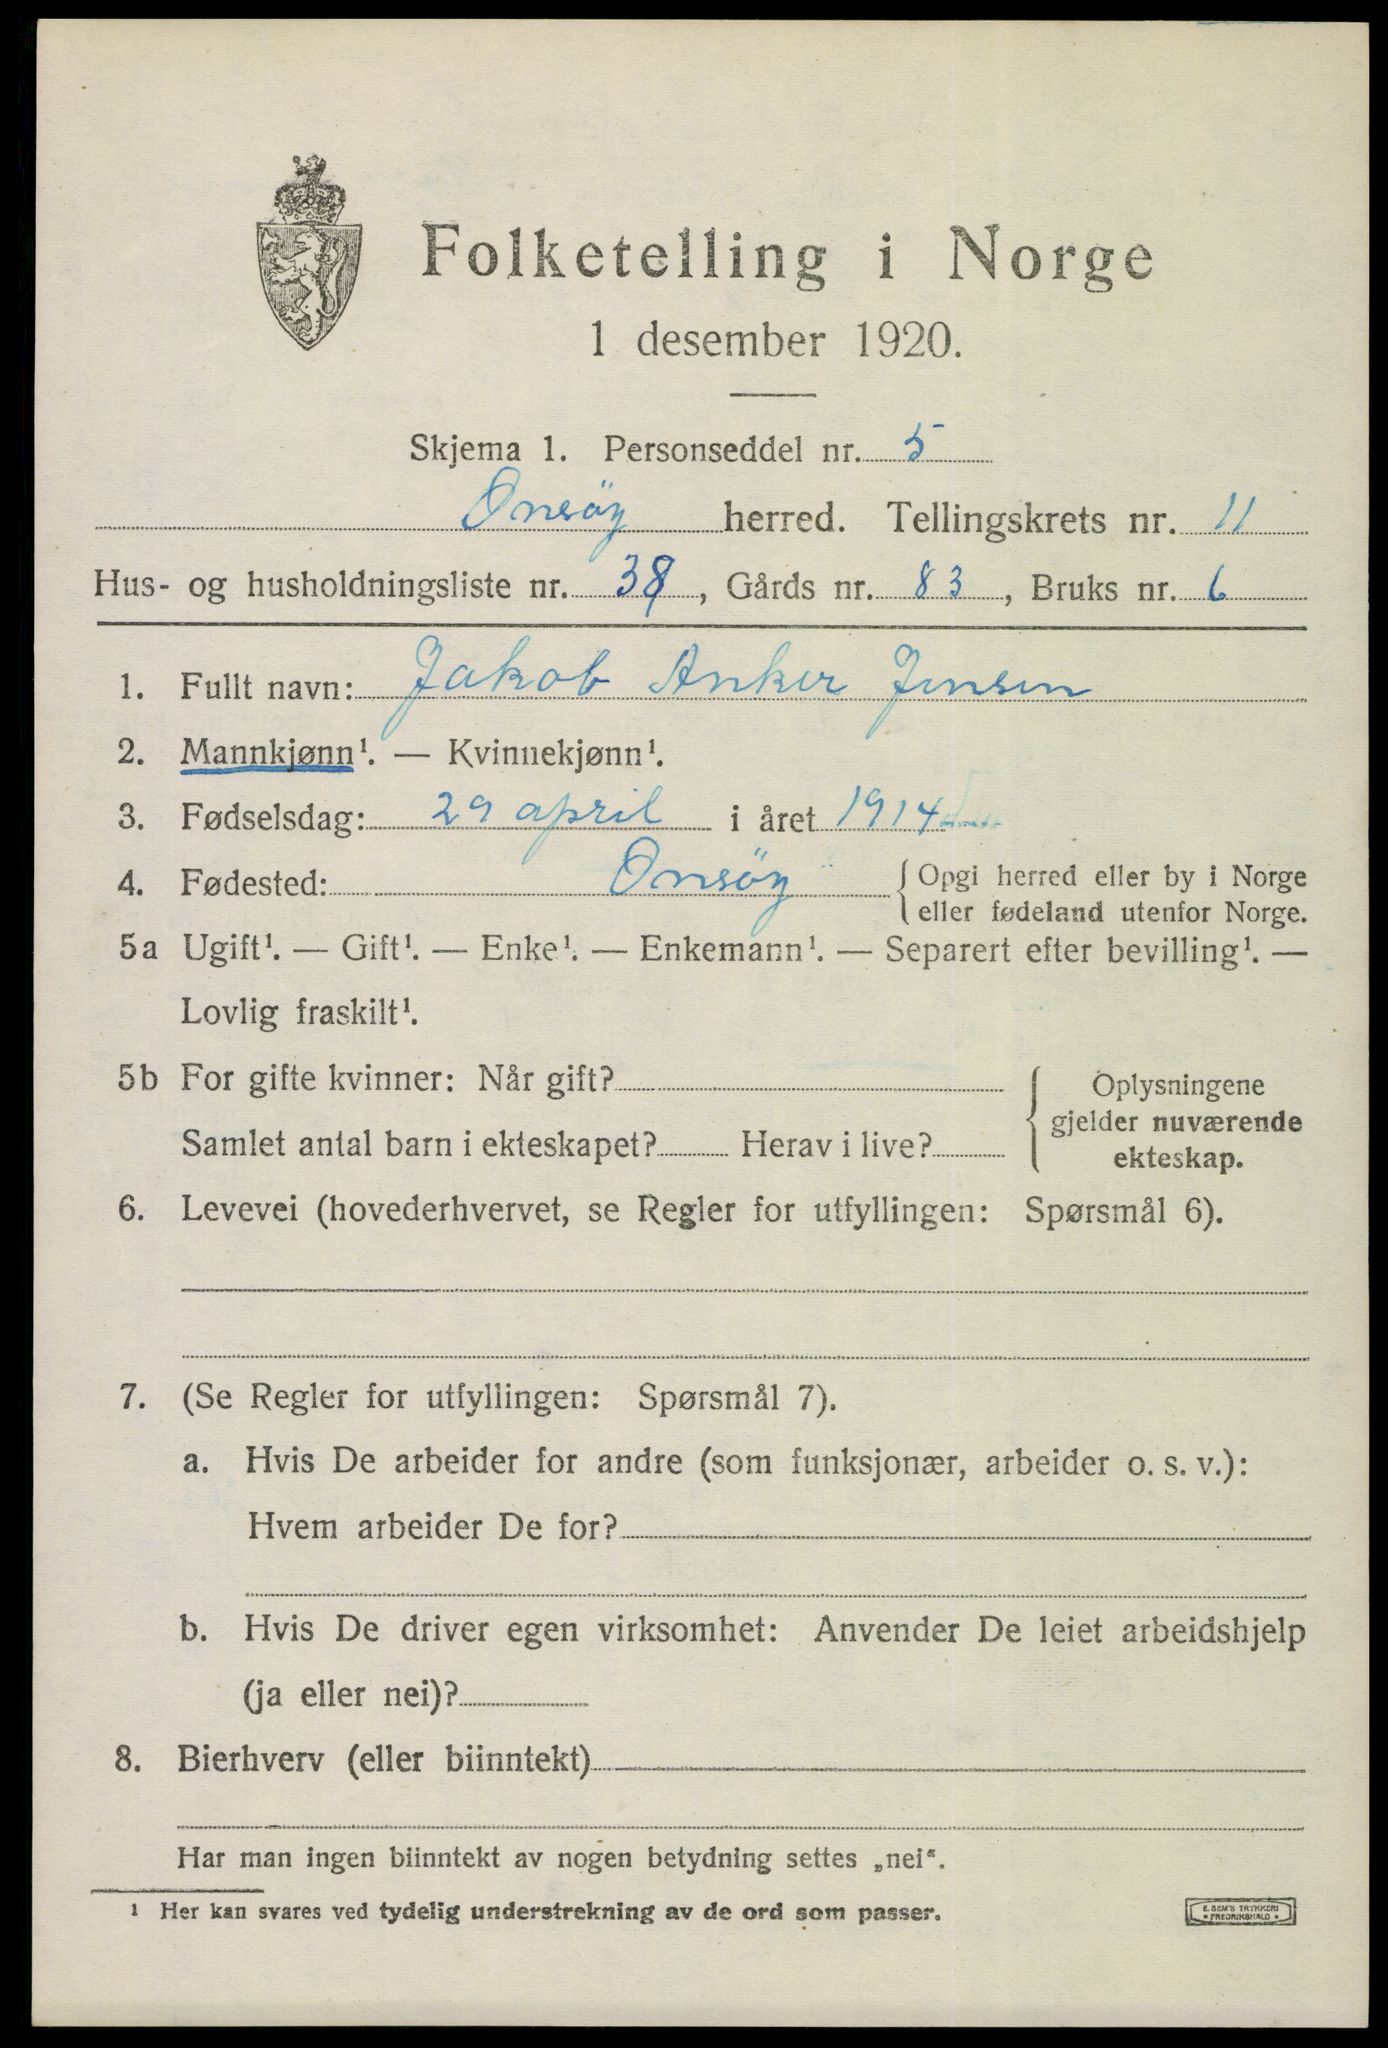 Folketelling i Norge
1 desember 1920.
Skjema 1. Personseddel nr. 5
Onsöy herred. Tellingskrets nr. 11
Hus- og husholdningsliste nr. 38, Gårds nr. 83, Bruks nr. 6
1. Fullt navn: Jakob Anker Jensen
2. Mannkjønn¹. — Kvinnekjønn¹.
3. Fødselsdag: 29 april i året 1914
4. Fødested: Onsöy { Opgi herred eller by i Norge
eller fødeland utenfor Norge.
5a Ugift¹. — Gift¹. — Enke¹. — Enkemann¹. — Separert efter bevilling¹. —
Lovlig fraskilt¹.
5b For gifte kvinner: Når gift?
Samlet antal barn i ekteskapet? Herav i live?
{ Oplysningene
gjelder nuværende
ekteskap.
6. Levevei (hovederhvervet, se Regler for utfyllingen: Spørsmål 6).
7. (Se Regler for utfyllingen: Spørsmål 7).
a. Hvis De arbeider for andre (som funksjonær, arbeider o. s. v.):
Hvem arbeider De for?
b. Hvis De driver egen virksomhet: Anvender De leiet arbeidshjelp
(ja eller nei)?
8. Bierhverv (eller biinntekt)
Har man ingen biinntekt av nogen betydning settes „nei“.
¹ Her kan svares ved tydelig understrekning av de ord som passer.
E. SEM'S TRYKKERI
• FREDRIKSHALD •